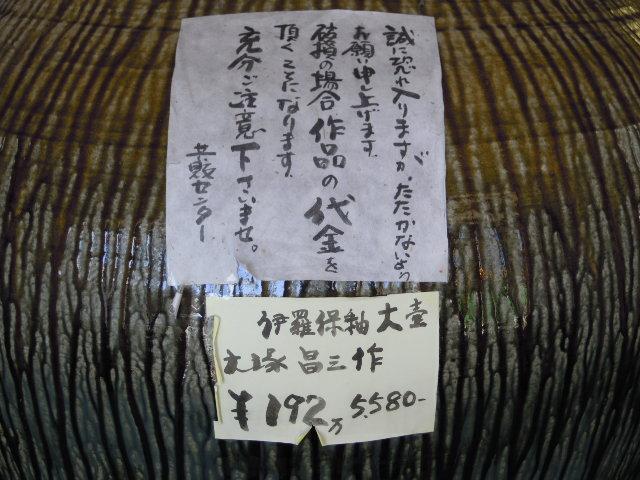 誠に恐れ入りますが、たたかないよう
お願い申し上げます。
破損の場合作品の代金を
頂くことになります。
充分ご注意下さいませ。
共販センター
伊羅保釉大壺
大塚昌三作
¥192万5.580-